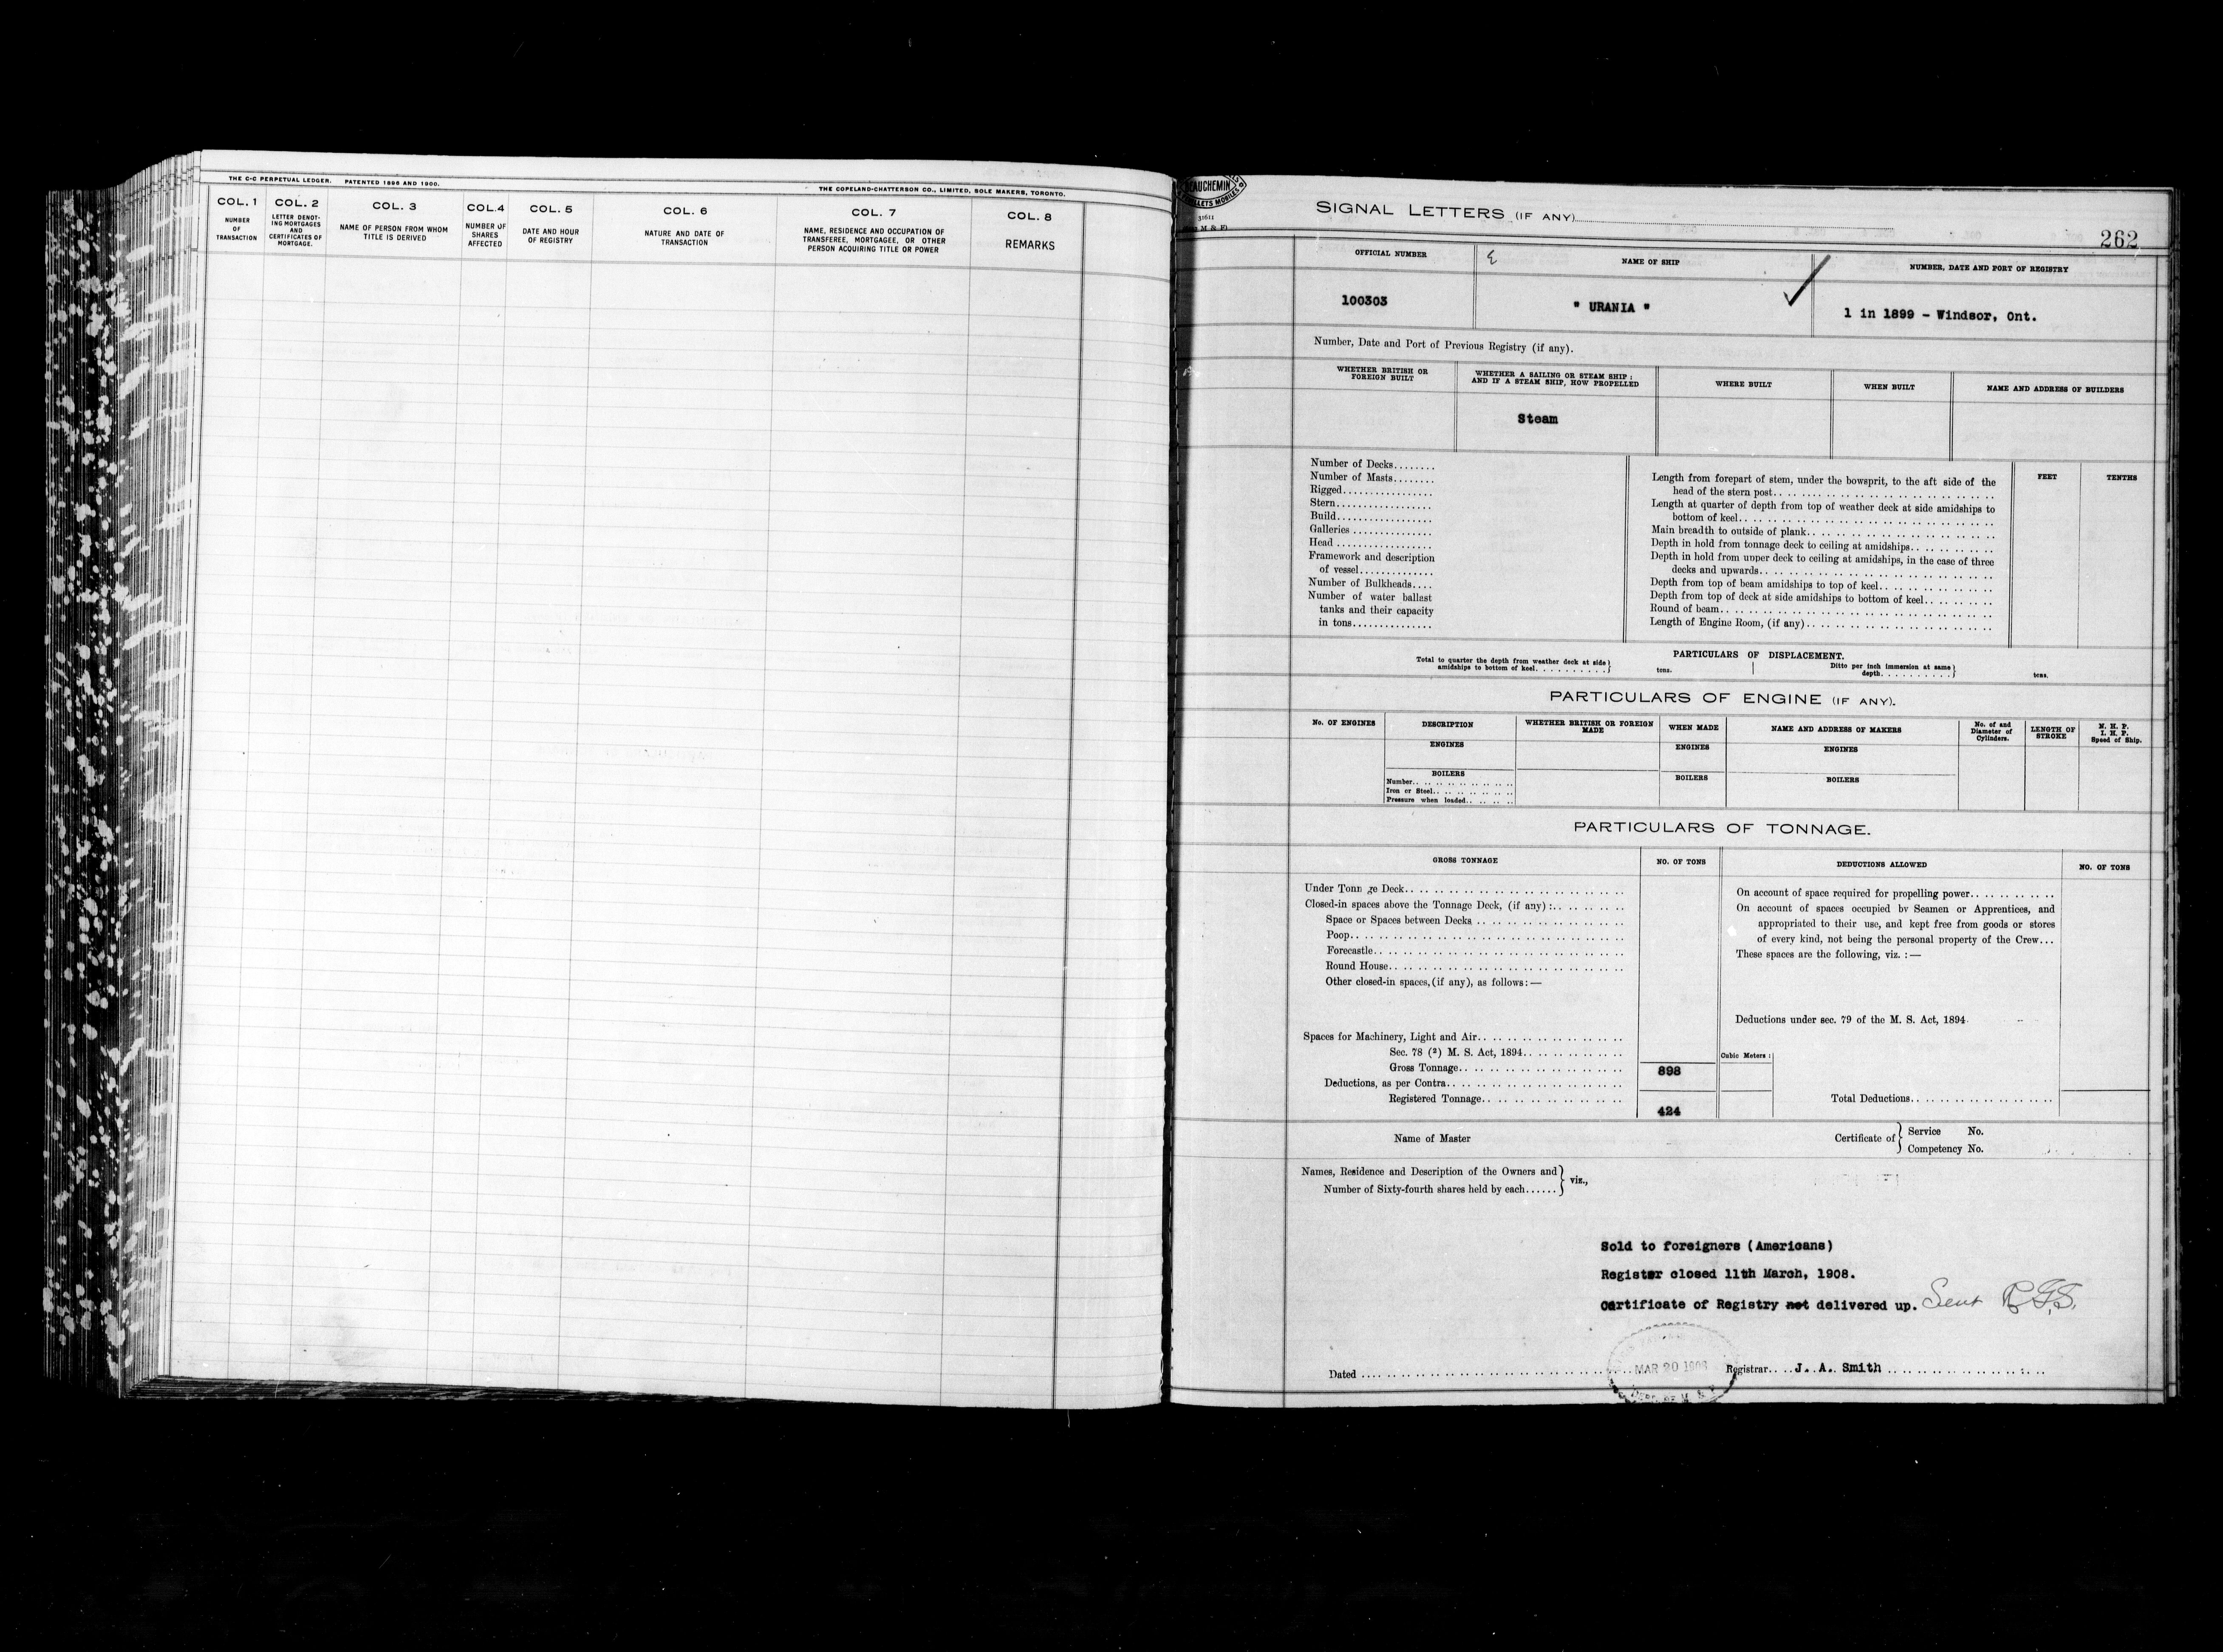 THE C-C PERPETUAL LEDGER. PATENTED 1896 AND 1900.
THE COPELAND-CHATTERSON CO., LIMITED, SOLE MAKERS, TORONTO.
COL. 1
NUMBER
OF
TRANSACTION
COL. 2
LETTER DENOT-
ING MORTGAGES
AND
CERTIFICATES OF
MORTGAGE.
COL. 3
NAME OF PERSON FROM WHOM
TITLE IS DERIVED
COL.4
NUMBER OF
SHARES
AFFECTED
COL. 5
DATE AND HOUR
OF REGISTRY
COL. 6
NATURE AND DATE OF
TRANSACTION
COL. 7
NAME, RESIDENCE AND OCCUPATION OF
TRANSFEREE, MORTGAGEE, OR OTHER
PERSON ACQUIRING TITLE OR POWER
COL. 8
REMARKS
AUCHEMIN
31611
M & F)
SIGNAL LETTERS (IF ANY)
262
OFFICIAL NUMBER
NAME OF SHIP
NUMBER, DATE AND PORT OF REGISTRY
100303
" URANIA "
1 in 1899 - Windsor, Ont.
Number, Date and Port of Previous Registry (if any).
WHETHER BRITISH OR
FOREIGN BUILT
WHETHER A SAILING OR STEAM SHIP :
AND IF A STEAM SHIP, HOW PROPELLED
WHERE BUILT
WHEN BUILT
NAME AND ADDRESS OF BUILDERS
Steam
Number of Decks........
Number of Masts........
Rigged.................
Stern..................
Build..................
Galleries ...............
Head ..................
Framework and description
of vessel..............
Number of Bulkheads....
Number of water ballast
tanks and their capacity
in tons...............
FEET
TENTHS
Length from forepart of stem, under the bowsprit, to the aft side of the
head of the stern post..............................
Length at quarter of depth from top of weather deck at side amidships to
bottom of keel..............................
Main breadth to outside of plank..............................
Depth in hold from tonnage deck to ceiling at amidships............
Depth in hold from upper deck to ceiling at amidships, in the case of three
decks and upwards..............................
Depth from top of beam amidships to top of keel................
Depth from top of deck at side amidships to bottom of keel..........
Round of beam..............................
Length of Engine Room, (if any)..............................
PARTICULARS OF DISPLACEMENT.
Total to quarter the depth from weather deck at side
amidships to bottom of keel..........
tons.
Ditto per inch immersion at same
depth..........
tons.
PARTICULARS OF ENGINE (IF ANY).
No. OF ENGINES
DESCRIPTION
WHETHER BRITISH OR FOREIGN
MADE
WHEN MADE
NAME AND ADDRESS OF MAKERS
No. of and
Diameter of
Cylinders.
LENGTH OF
STROKE
N. H. P.
I. H. P.
Speed of Ship.
ENGINES
ENGINES
ENGINES
BOILERS
BOILERS
BOILERS
Number..............
Iron or Steel............
Pressure when loaded......
PARTICULARS OF TONNAGE.
GROSS TONNAGE
NO. OF TONS
DEDUCTIONS ALLOWED
NO. OF TONS
Under Tonn ge Deck..............................
Closed-in spaces above the Tonnage Deck, (if any) :..........
Space or Spaces between Decks ....................
Poop..............................
Forecastle..............................
Round House..............................
Other closed-in spaces,(if any), as follows: —
Spaces for Machinery, Light and Air....................
Sec. 78 (2) M. S. Act, 1894..............
Gross Tonnage....................
898
Deductions, as per Contra....................
Registered Tonnage....................
424
On account of space required for propelling power............
On account of spaces occupied by Seamen or Apprentices, and
appropriated to their use, and kept free from goods or stores
of every kind, not being the personal property of the Crew...
These spaces are the following, viz. : —
Deductions under sec. 79 of the M. S. Act, 1894
Cubic Meters :
Total Deductions....................
Name of Master
Certificate of
Service No.
Competency No.
Names, Residence and Description of the Owners and
Number of Sixty-fourth shares held by each......
viz.,
Sold to foreigners (Americans)
Register closed 11th March, 1908.
Certificate of Registry not delivered up. Sent
Dated ..............................
MAR 20 1908
Registrar.... J. A. Smith ....................